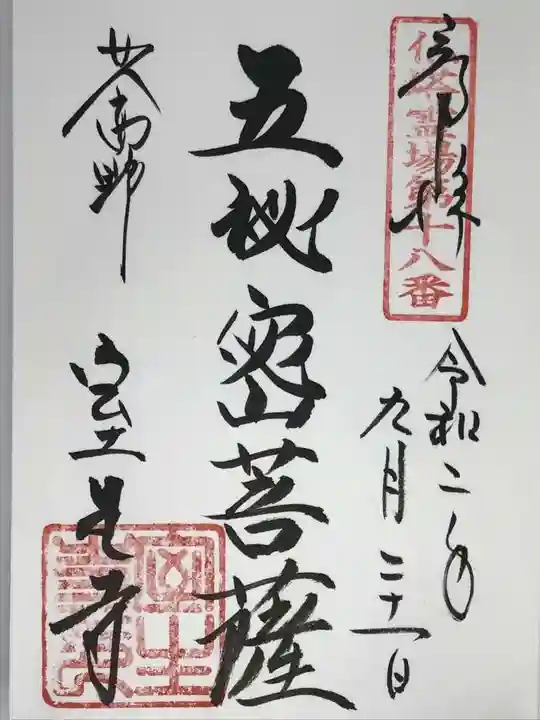 奉拝
仏塔霊場第十八番
令和二年
九月二十一日
五秘密菩薩
女人高野
室生寺